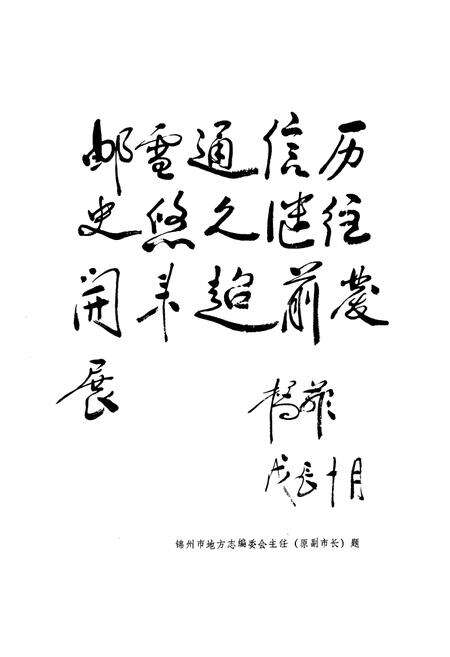 邮電通信历
史悠久继往
開来超前發
展
戊辰十月
锦州市地方志编委会主任（原副市长）题